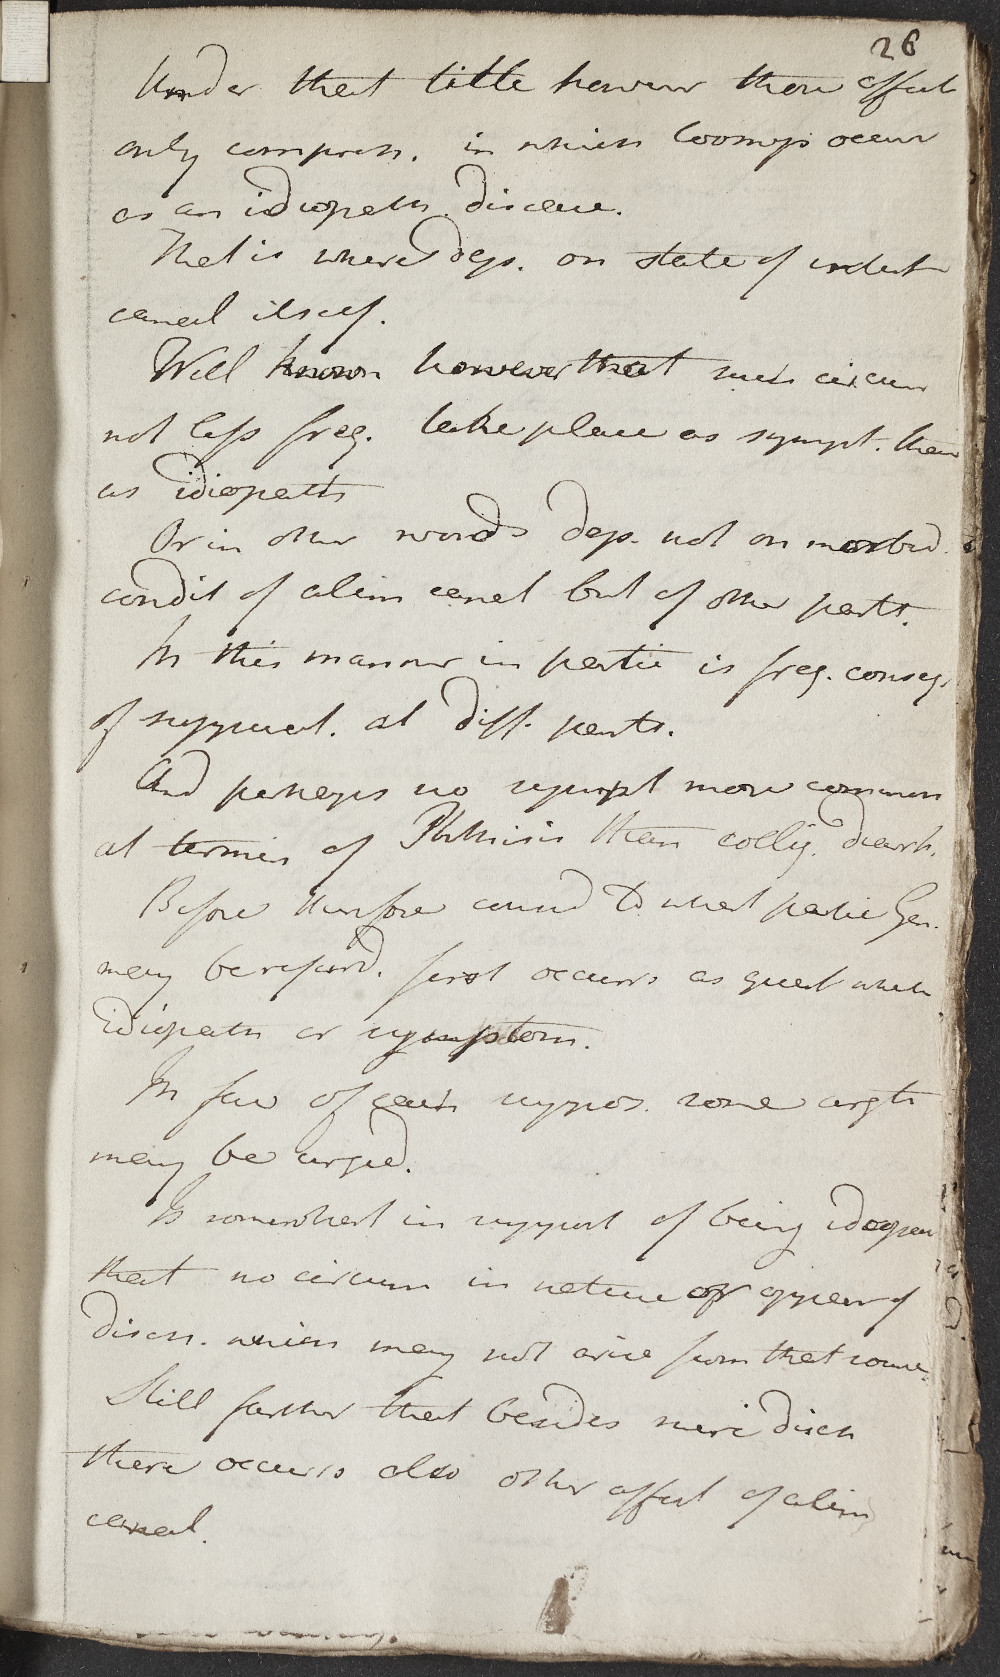 26
Under that title however those affect
only compreh. in which loosnys occur
as an idiopath. disease.
That is where deps. on state of intest
canal itself.
Well known however that such circum
not less freq. take place as sympt. than
as idiopath
Or in other words dep. not on morbid
condit of alim canal but of other parts.
In this manner in partic is freq. conseq.
of suppurat. at diff. parts.
And perhaps no sympt more common
at termin of Phthisis than colliq. diarrh.
Before therefore consid to what partic Gen.
may be referrd. first occurrs as quest wheth
idiopath or symptom.
In fav of each suppos. some argts
may be urged.
Is somewhat in support of being idiopath
that no circum in nature or appear of
disch. which may not arise from that source.
Still farther that besides mere disch
there occurrs also other affect of alim
canal.